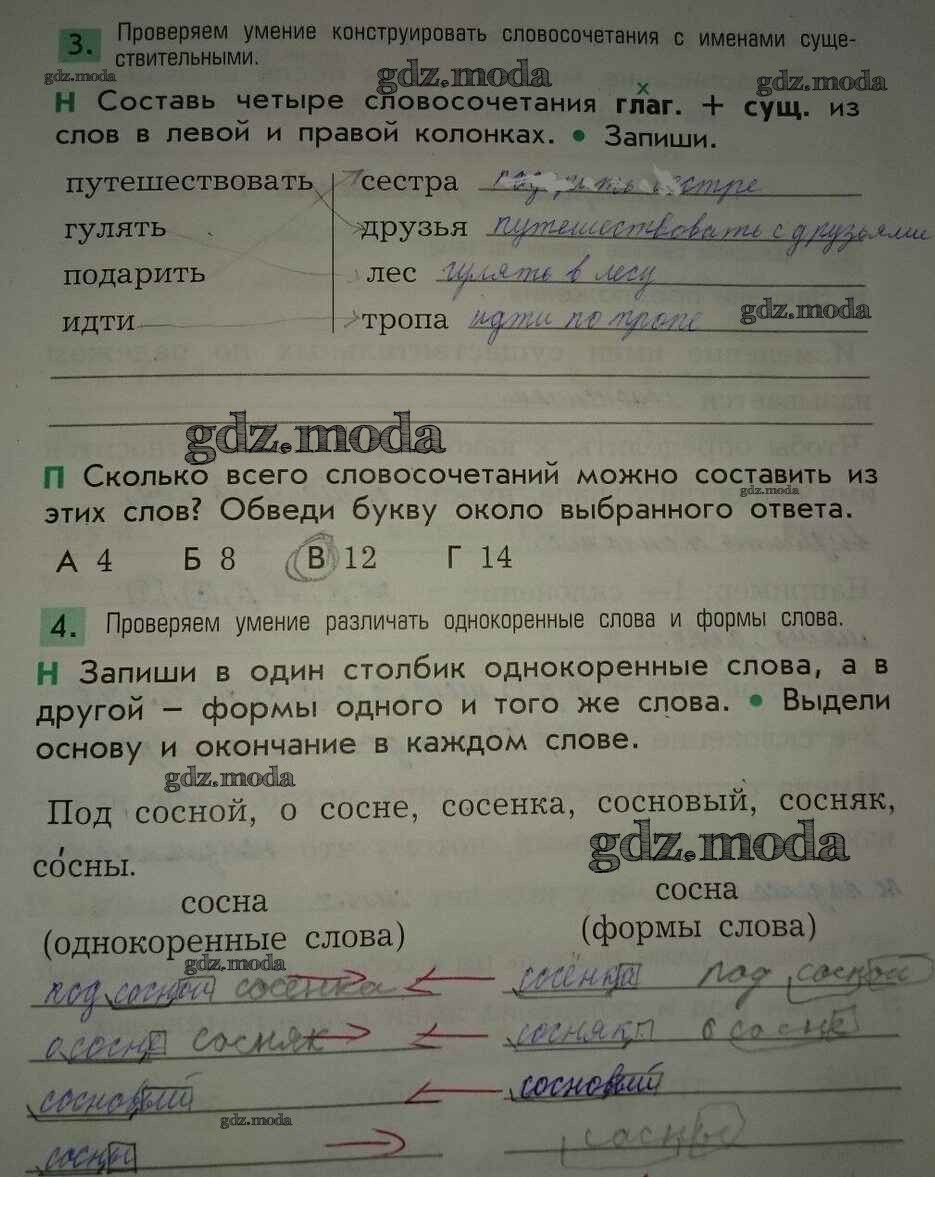 3. Проверяем умение конструировать словосочетания с именами суще-
ствительными.
gdz.moda gdz.moda gdz.moda
Н Составь четыре словосочетания глаг. + сущ. из
х
слов в левой и правой колонках. • Запиши.
путешествовать сестра сестре
гулять друзья путешествовать с друзьями
подарить лес гулять в лесу
идти тропа идти по тропе
gdz.moda
gdz.moda
П Сколько всего словосочетаний можно составить из
gdz.moda
этих слов? Обведи букву около выбранного ответа.
А 4 Б 8 В 12 Г 14
4. Проверяем умение различать однокоренные слова и формы слова.
Н Запиши в один столбик однокоренные слова, а в
другой – формы одного и того же слова. • Выдели
основу и окончание в каждом слове.
gdz.moda
Под сосной, о сосне, сосенка, сосновый, сосняк,
gdz.moda
со́сны.
сосна сосна
(однокоренные слова) (формы слова)
gdz.moda
под сосной сосенка сосёнка под сосной
о сосне сосняк сосняк о сосне
сосновый сосновый
gdz.moda
сосны сосны